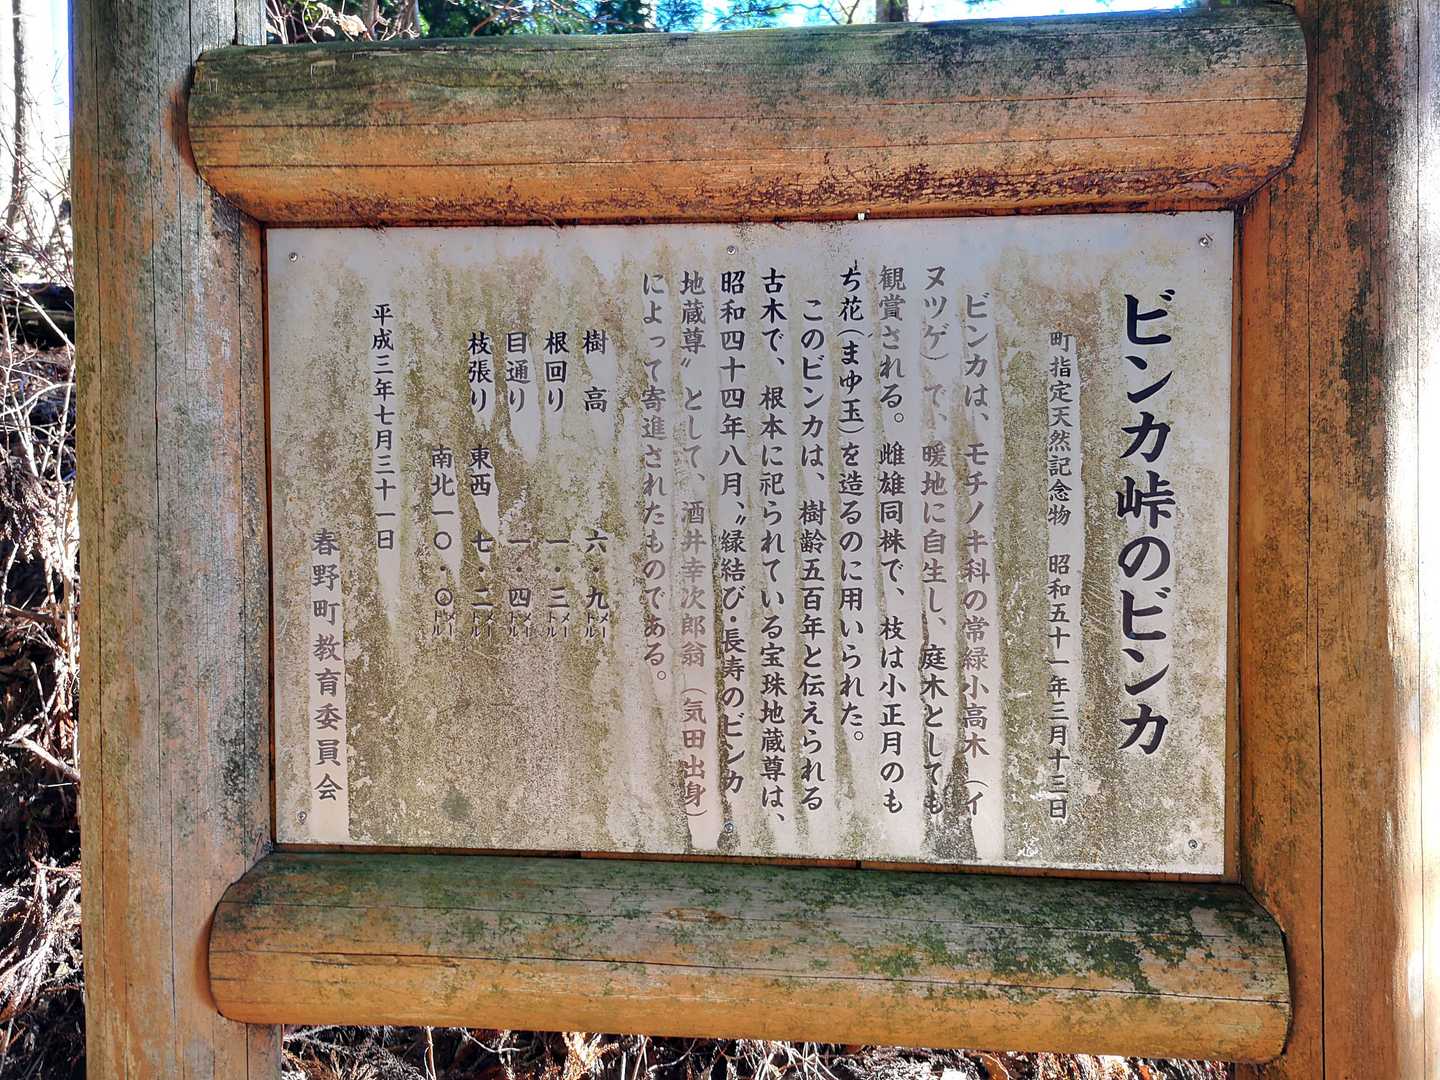 ビンカ峠のビンカ
町指定天然記念物　昭和五十一年三月十三日
ビンカは、モチノキ科の常緑小高木（イ
ヌツゲ）で、暖地に自生し、庭木としても
観賞される。雌雄同株で、枝は小正月のも
ち花（まゆ玉）を造るのに用いられた。
このビンカは、樹齢五百年と伝えられる
古木で、根本に祀られている宝珠地蔵尊は、
昭和四十四年八月、〝縁結び・長寿のビンカ
地蔵尊〟として、酒井幸次郎翁（気田出身）
によって寄進されたものである。
樹　高　六・九メートル
根回り　一・三メートル
目通り　一・四メートル
枝張り　東西　七・二メートル
南北一〇・〇メートル
平成三年七月三十一日
春野町教育委員会